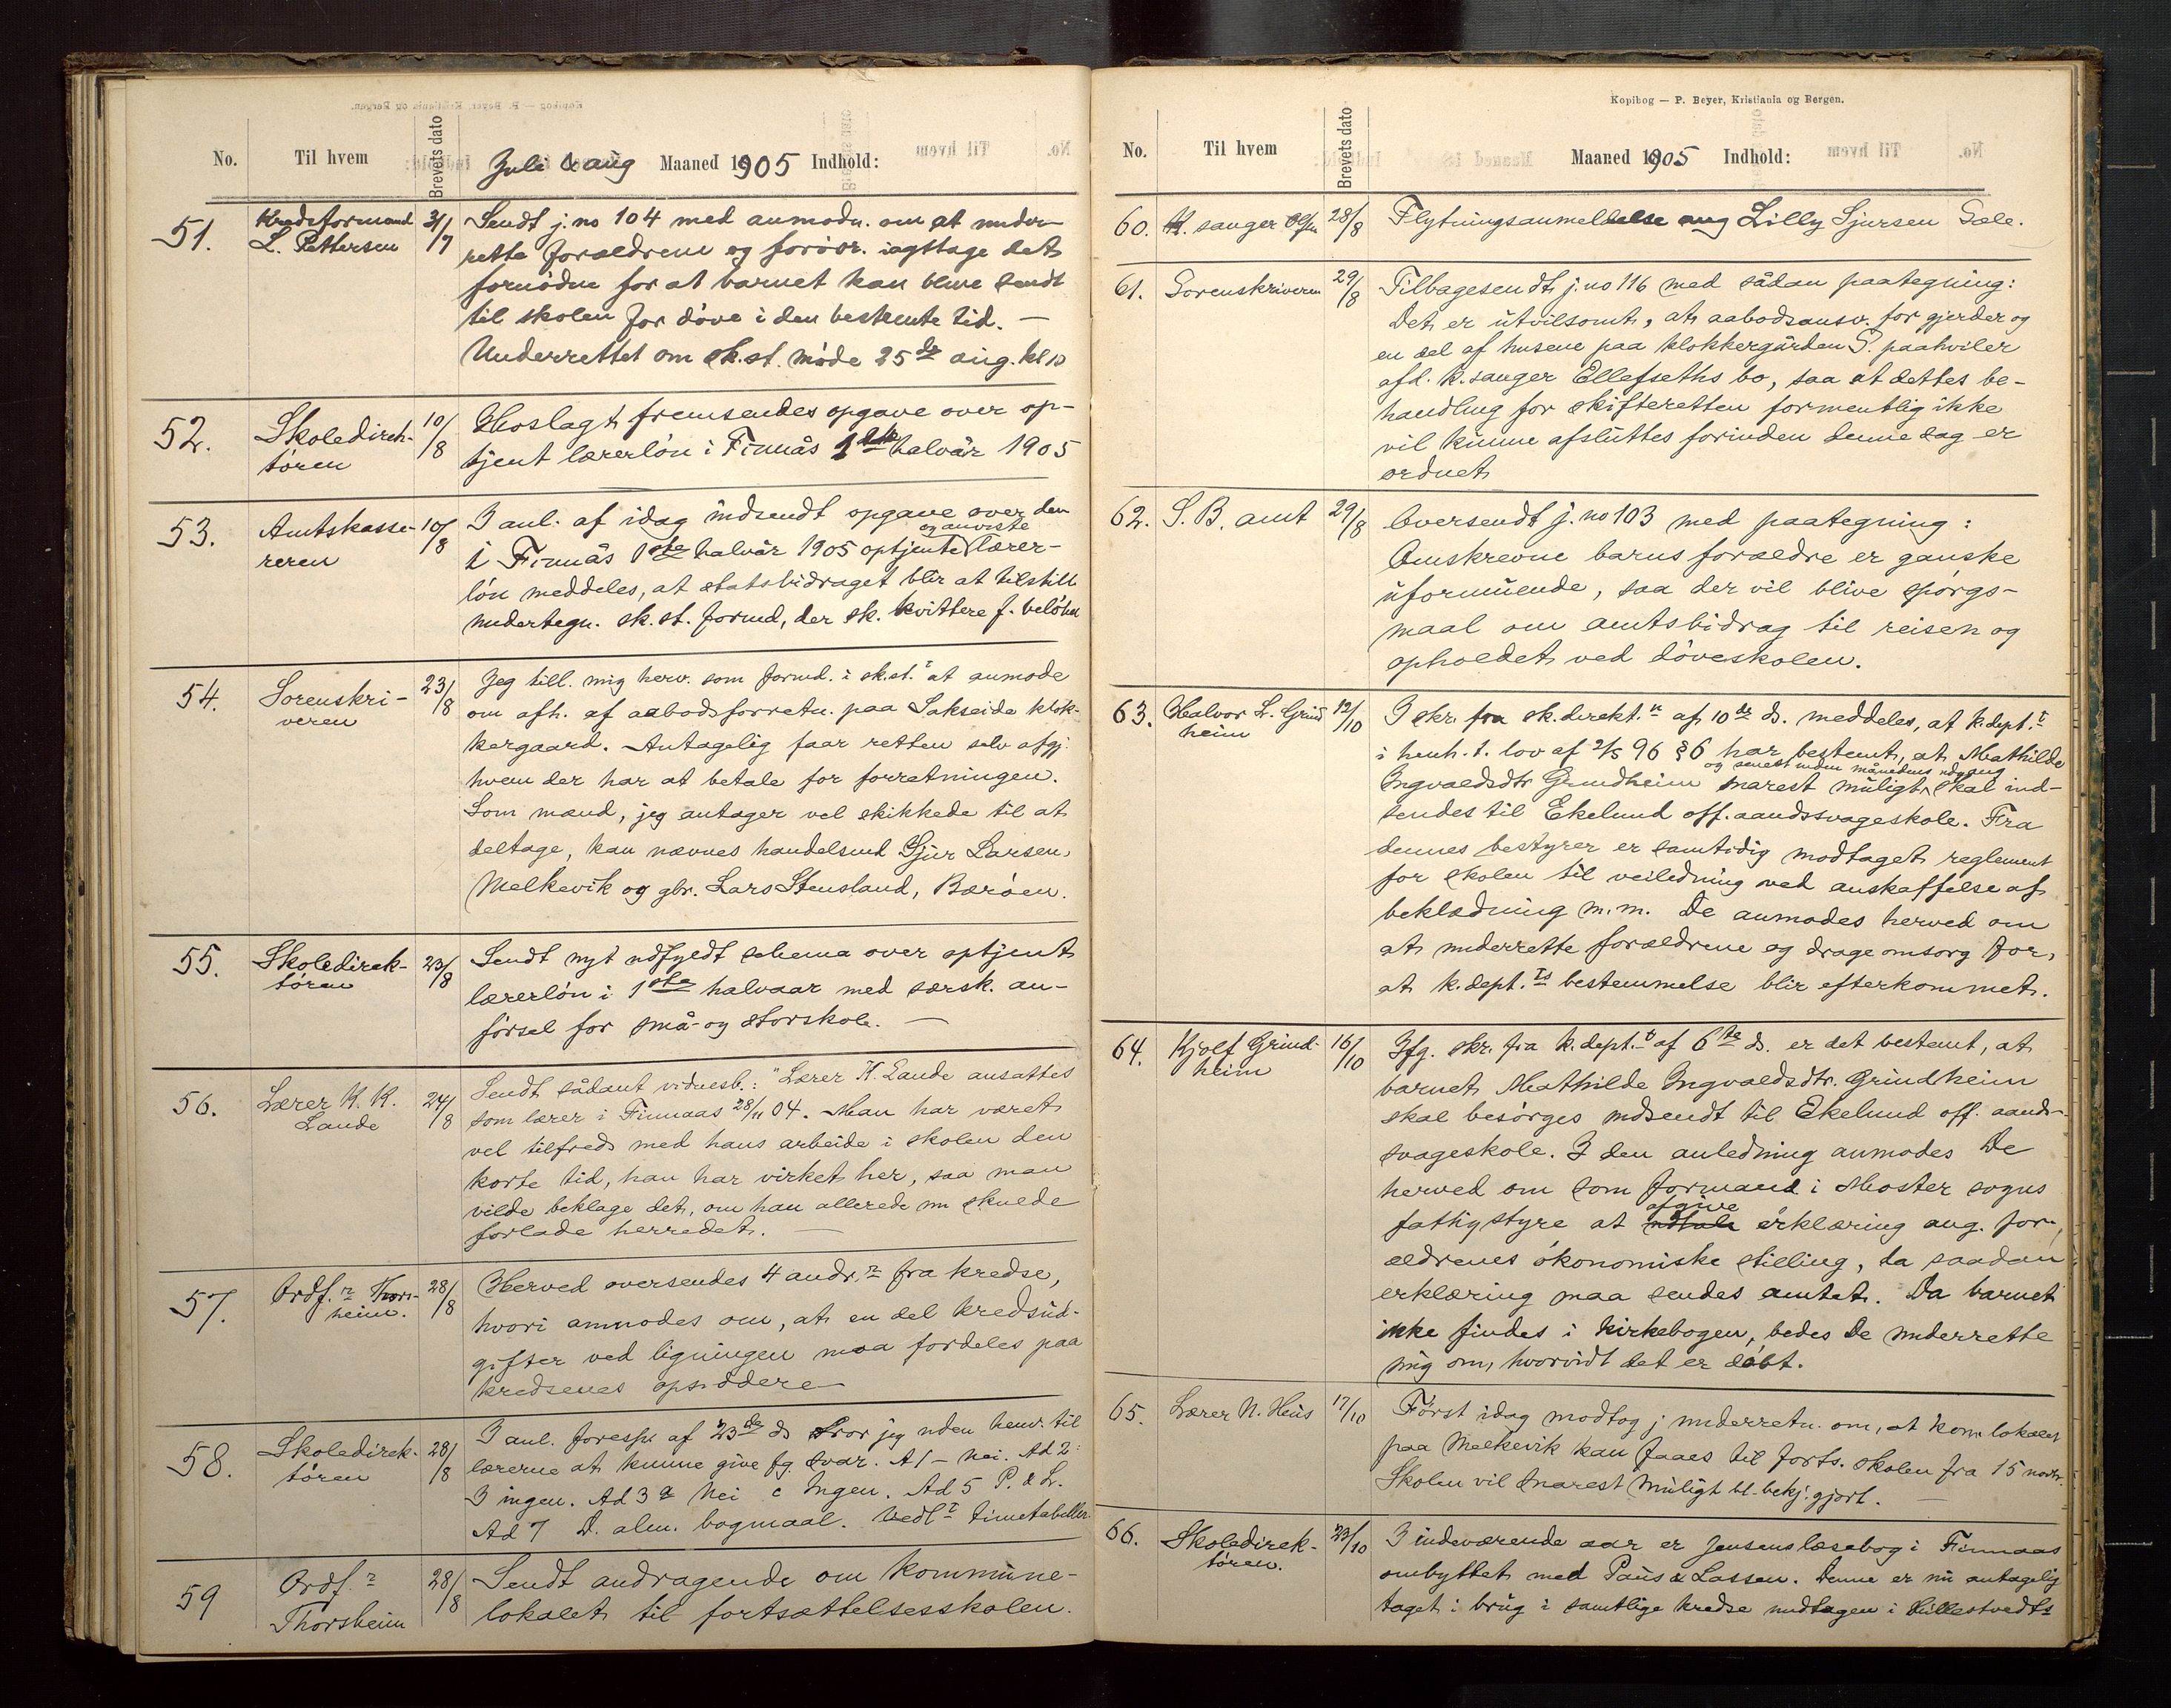 No. Til hvem Brevets dato Juli & aug Maaned 1905 Indhold:
51. Kredsformand L. Pettersen 31/7 Sendt j. no 104 med anmodn. om at under-
rette forældrene og forövr. iagttage det
fornödne for at barnet kan blive sendt
til skolen for döve i den bestemte tid. —
Underrettet om sk.st. möde 25de aug. kl 10
52. Skoledirek-
tören 10/8 Hoslagt fremsendes opgave over op-
tjent lærerlön i Finnås 1ste halvår 1905
53. Amtskasse-
reren 10/8 I anl. af idag indsendt opgave over den
i Finnås 1ste halvår 1905 optjente og anviste lærer-
lön meddeles, at statsbidraget blir at tilstille
undertegn. sk.st. formd, der sk. kvittere f. belöbet
54. Sorenskri-
veren 23/8 Jeg till. mig herv. som formd. i sk.st.t at anmode
om afh. af aabodsforretn. paa Sakseide klok-
kergaard. Antagelig faar retten selv afgj.
hvem der har at betale for forretningen.
Som mænd, jeg antager vel skikkede til at
deltage, kan nævnes handelsmd Sjur Larsen,
Melkevik og gbr. Lars Stensland, Bæröen.
55. Skoledirek-
tören 23/8 Sendt nyt udfyldt schema over optjent
lærerlön i 1ste halvaar med særsk. an-
försel for små- og storskole. —
56. Lærer K. K.
Lande 24/8 Sendt sådant vidnesb.: "Lærer K. Lande ansattes
som lærer i Finnaas 28/11 04. Man har været
vel tilfreds med hans arbeide i skolen den
korte tid, han har virket her, saa man
vilde beklage det, om han allerede nu skulde
forlade herredet. —
57. Ordf.r Thors-
heim. 28/8 Herved oversendes 4 andr.r fra kredse,
hvori anmodes om, at en del kredsud-
gifter ved ligningen maa fordeles paa
kredsenes opsiddere
58. Skoledirek-
tören 28/8 I anl. foresp. af 23de ds tror jeg uden henv. til
lærerne at kunne give fg. svar. A1 – Nei. Ad 2:
I ingen. Ad 3 a Nei c Ingen. Ad 5 P. & L.
Ad 7 D. alm. bogmaal. Vedl.t timetabeller.
59 Ordf.r
Thorsheim 28/8 Sendt andragende om kommune-
lokalet til fortsættelsesskolen.
Kopibog — P. Beyer, Kristiania og Bergen.
No. Til hvem Brevets dato Maaned 1905 Indhold:
60. K. sanger 28/8 Flytningsanmeldelse ang Lilly Sjursen Sele.
61. Sorenskriveren 29/8 Tilbagesendt j. no 116 med sådan paategning:
Det er utvilsomt, at aabodsansv. for gjerder og
en del af husene paa klokkergården S. paahviler
afd. k.sanger Ellefseths bo, saa at dettes be-
handling for skifteretten formentlig ikke
vil kunne afsluttes forinden denne sag er
ordnet
62. S. B. amt 29/8 Oversendt j. no 103 med paategning:
Omskrevne barns forældre er ganske
uformuende, saa der vil blive spörgs-
maal om amtsbidrag til reisen og
opholdet ved döveskolen.
63. Halvor L. Grind
heim 12/10 I skr. fra sk.direkt.n af 10de ds. meddeles, at k.dept.t
i henh. t. lov af 2/5 96 § 6 har bestemt, at Mathilde
og senest inden månedens udgang
Ingvaldsdtr Grindheim snarest muligt skal ind-
sendes til Ekelund off. aandssvageskole. Fra
dennes bestyrer er samtidig modtaget reglement
for skolen til veiledning ved anskaffelse af
beklædning m.m. De anmodes herved om
at underrette forældrene og drage omsorg for,
at k.dept.ts bestemmelse blir efterkommet.
64. Kjolf Grind-
heim 16/10 Ifg. skr. fra k.dept.t af 6te ds. er det bestemt, at
barnet Mathilde Ingvaldsdtr. Grindheim
skal besörges indsendt til Ekelund off. aands-
svageskole. I den anledning anmodes De
herved om som formand i Moster sogns
fattigstyre at afgive erklæring ang. for-
ældrenes ökonomiske stilling, da saadan
erklæring maa sendes amtet. Da barnet
ikke findes i kirkebogen, bedes De underrette
mig om, hvorvidt det er döbt.
65. Lærer N. Heus 17/10 Först idag modtog j underretn. om, at kom. lokalet
paa Melkevik kan faaes til forts. skolen fra 15 novbr.
Skolen vil snarest muligt bl. bekj. gjort. —
66. Skoledirek-
tören. 23/10 I indeværende aar er Jensens læsebog i Finnaas
ombyttet med Paus & Lassen. Denne er nu antagelig
taget i brug i samtlige kredse undtagen i Hillestvedts